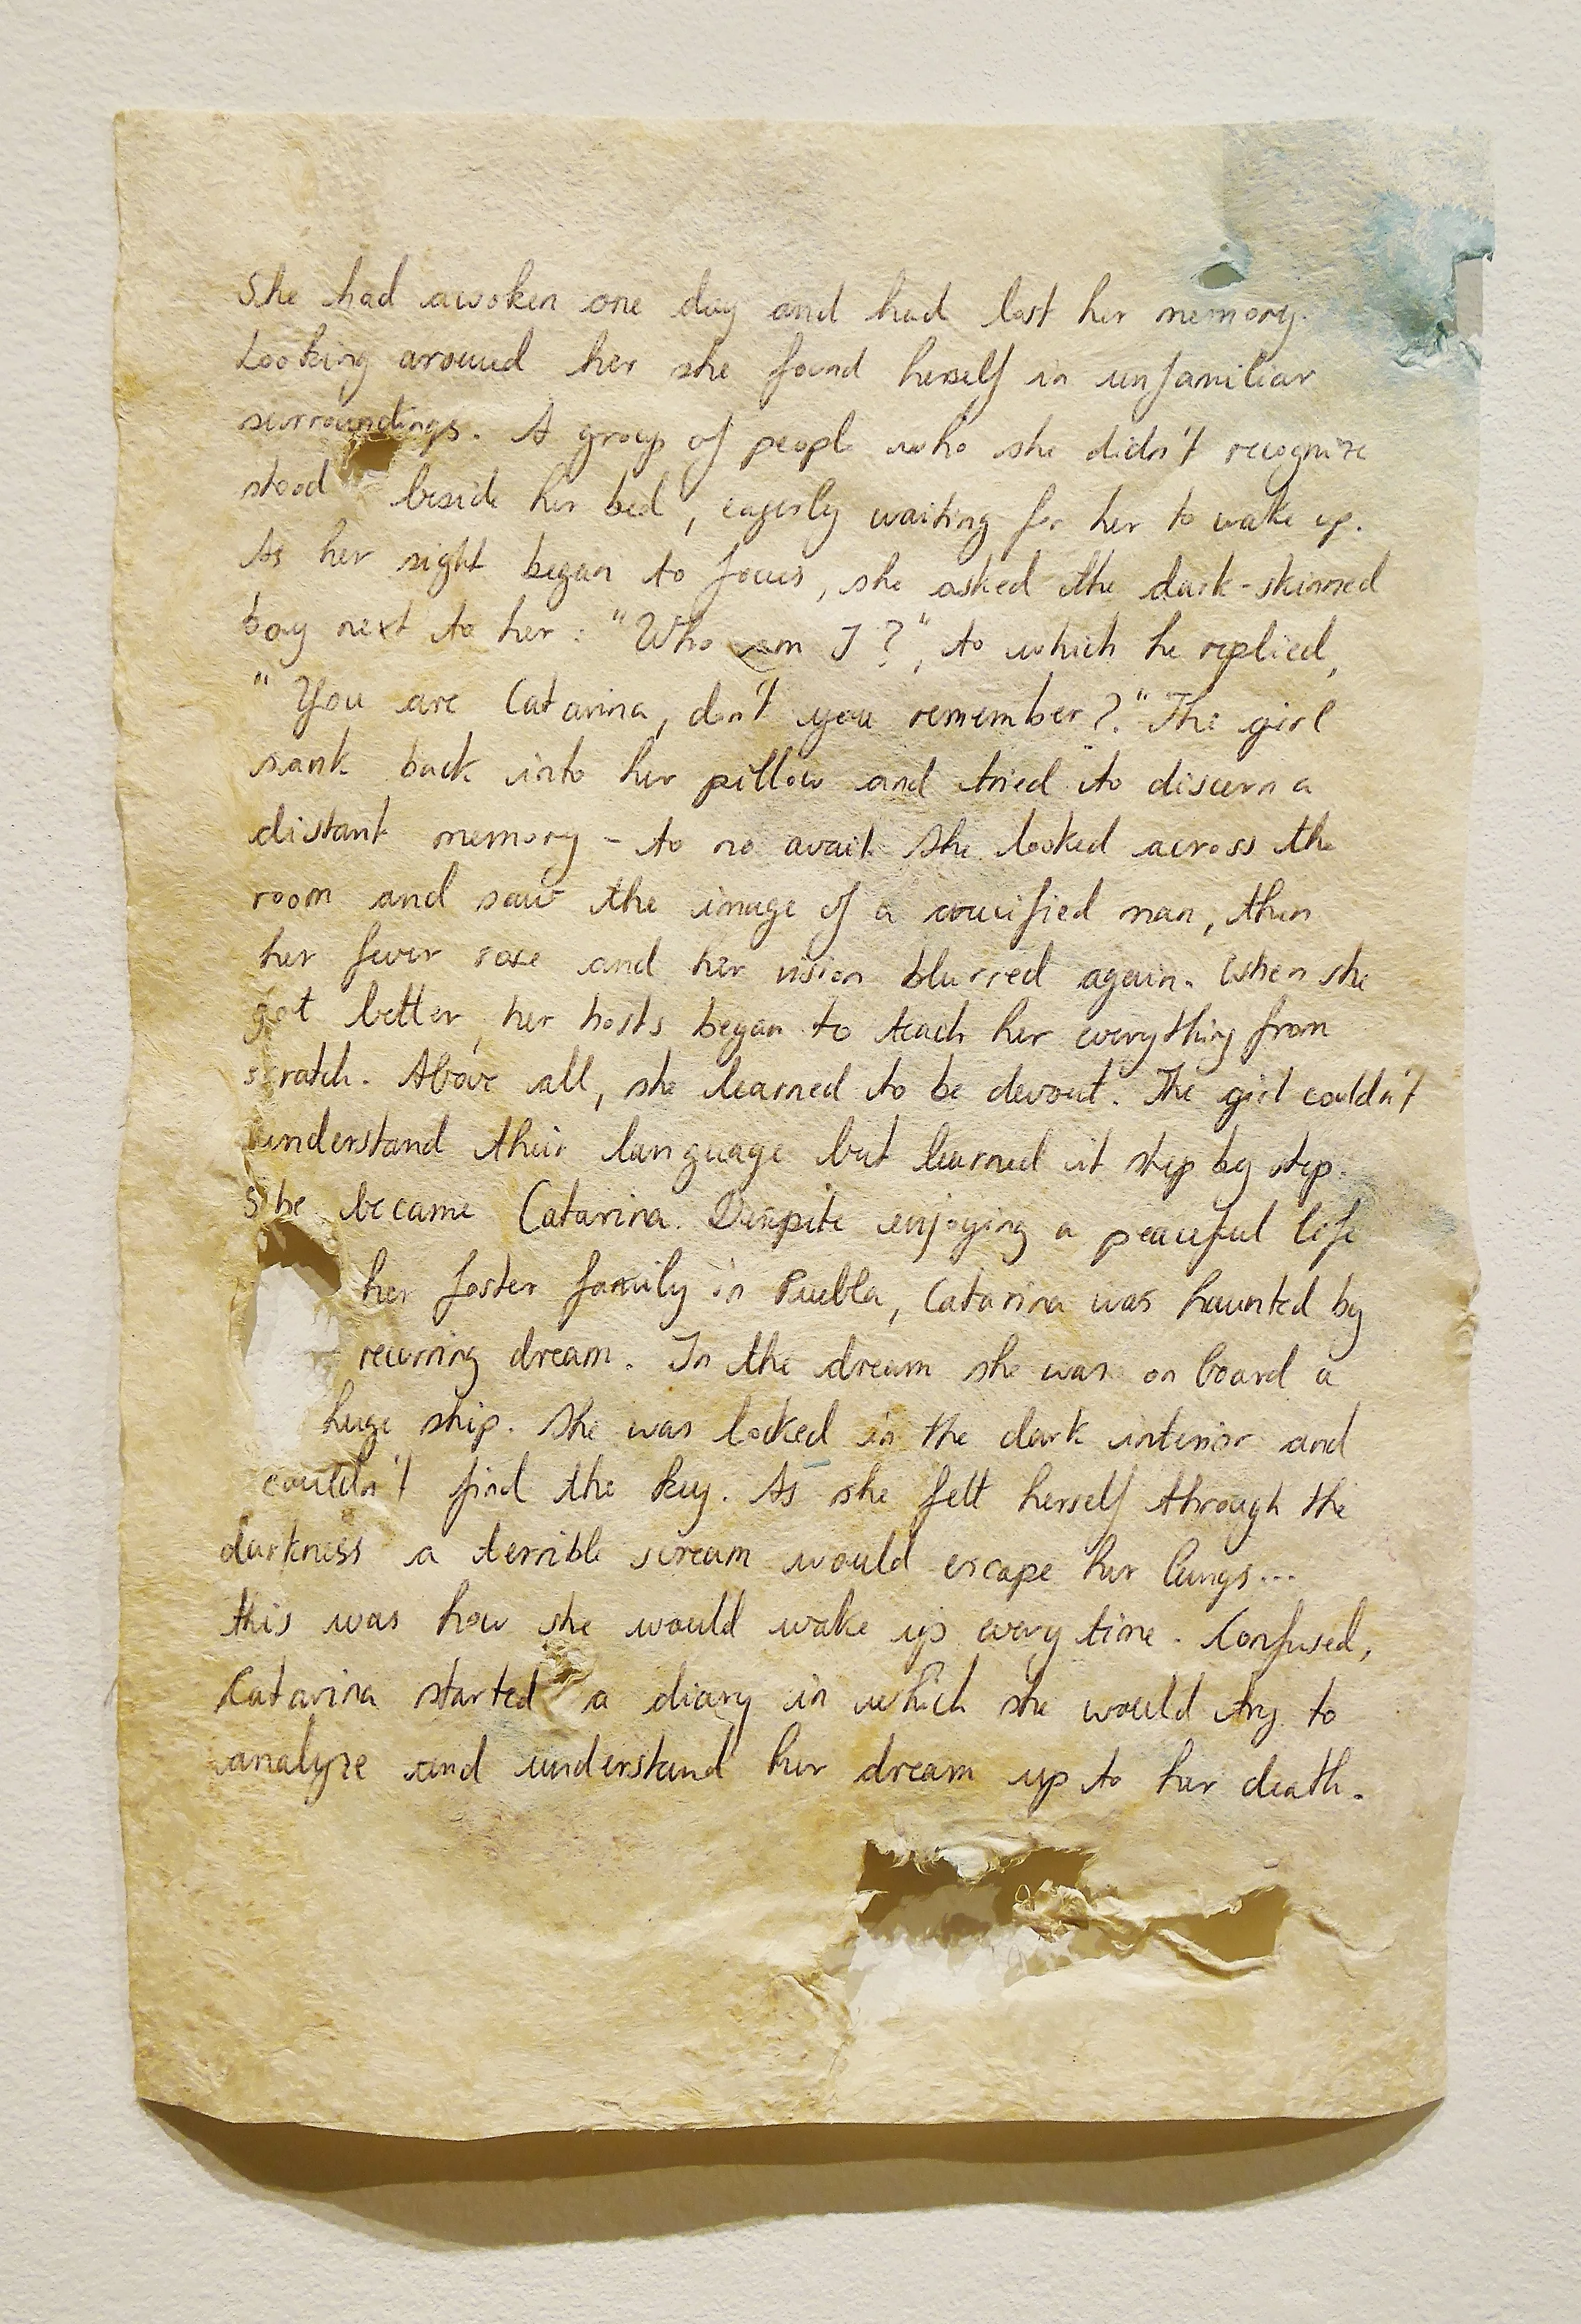 She had awoken one day and had lost her memory.
Looking around her she found herself in unfamiliar
surroundings. A group of people who she didn't recognize
stood beside her bed, eagerly waiting for her to wake up.
As her sight began to focus, she asked the dark-skinned
boy next to her: "Who am I?", to which he replied,
"You are Catarina, don't you remember?" The girl
sank back into her pillow and tried to discern a
distant memory - to no avail. She looked across the
room and saw the image of a crucified man, then
her fever rose and her vision blurred again. When she
got better, her hosts began to teach her everything from
scratch. Above all, she learned to be devout. The girl couldn't
understand their language but learned it step by step.
She became Catarina. Despite enjoying a peaceful life
her foster family in Puebla, Catarina was haunted by
recurring dream. In the dream she was on board a
huge ship. She was locked in the dark interior and
couldn't find the key. As she felt herself through the
darkness a terrible scream would escape her lungs...
this was how she would wake up every time. Confused,
Catarina started a diary in which she would try to
analyze and understand her dream up to her death.